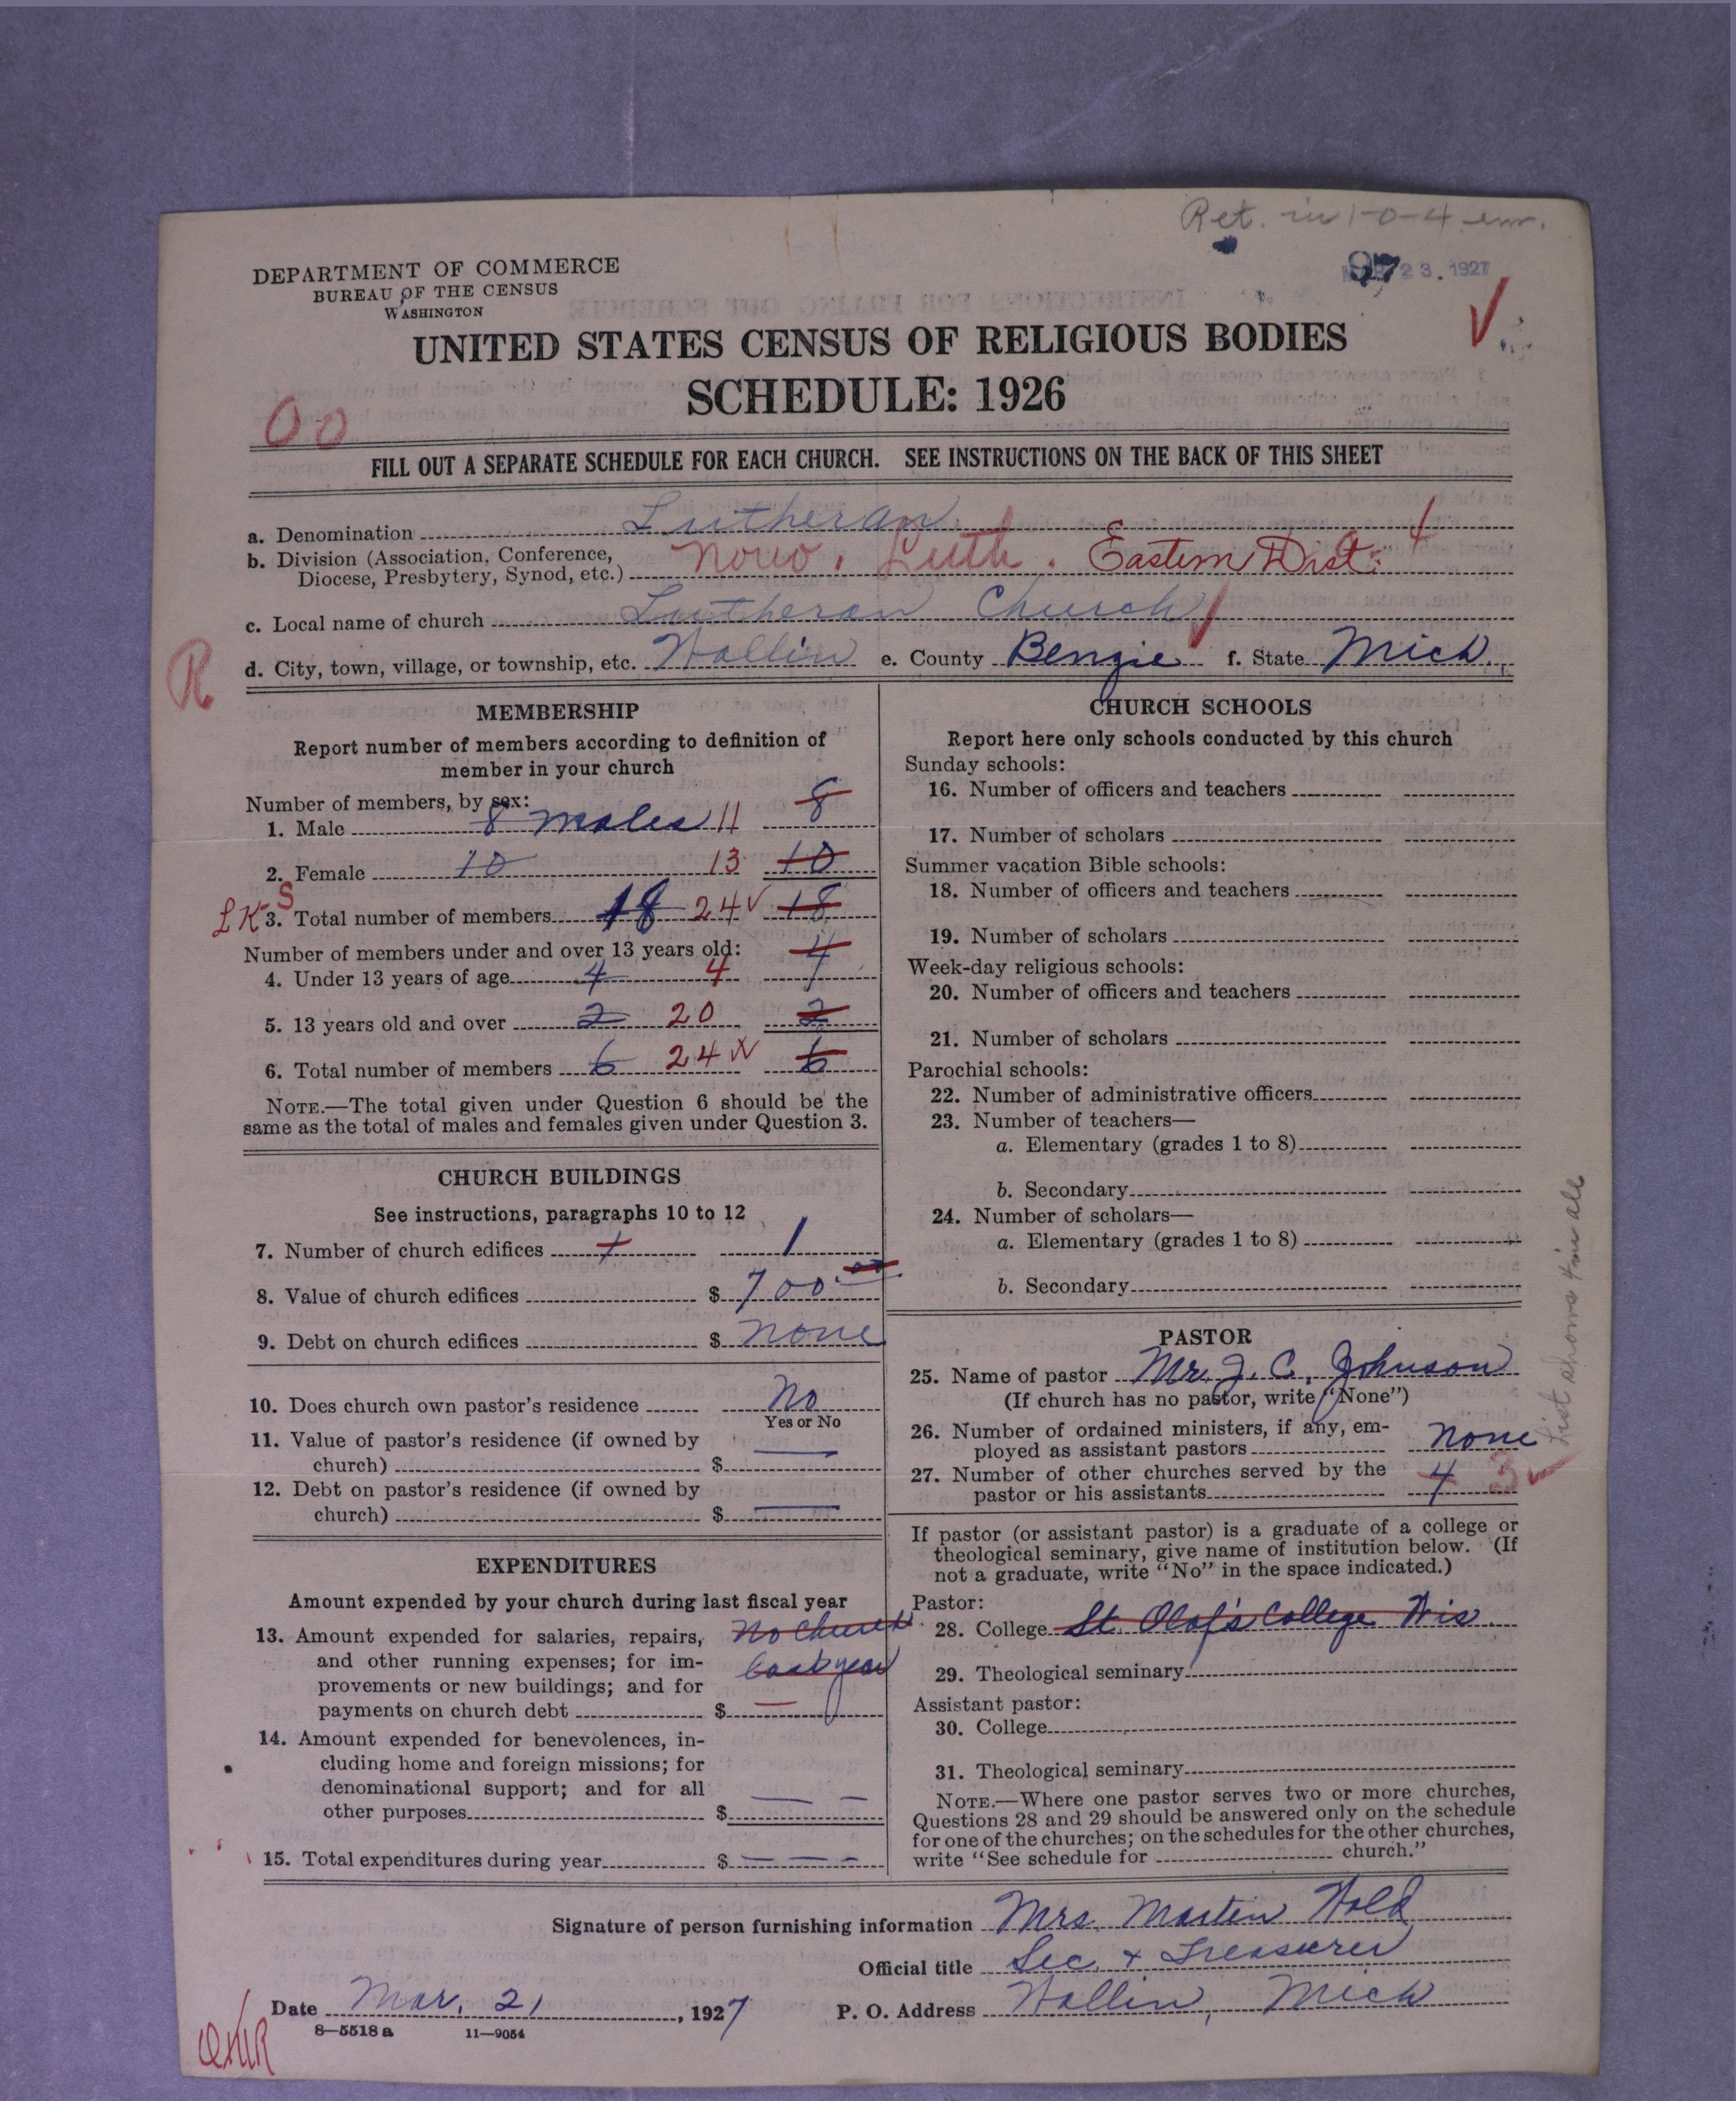 Ret. in 1-0-4 em.
DEPARTMENT OF COMMERCE
BUREAU OF THE CENSUS
WASHINGTON
97 23. 1927
UNITED STATES CENSUS OF RELIGIOUS BODIES
SCHEDULE: 1926
00
FILL OUT A SEPARATE SCHEDULE FOR EACH CHURCH. SEE INSTRUCTIONS ON THE BACK OF THIS SHEET
a. Denomination Lutheran
b. Division (Association, Conference,
Diocese, Presbytery, Synod, etc.) Norw. Luth. Eastern Dist.
c. Local name of church Lutheran Church
R
d. City, town, village, or township, etc. Wallin e. County Benzie f. State Mich.
MEMBERSHIP
Report number of members according to definition of
member in your church
Number of members, by sex:
1. Male 8 males 11 8
2. Female 10 13 10
LK-S
3. Total number of members 18 24 ✓ 18
Number of members under and over 13 years old:
4. Under 13 years of age 4 4 4
5. 13 years old and over 2 20 2
6. Total number of members 6 24 6
NOTE.—The total given under Question 6 should be the
same as the total of males and females given under Question 3.
CHURCH BUILDINGS
See instructions, paragraphs 10 to 12
7. Number of church edifices 1 1
8. Value of church edifices $ 700 00
9. Debt on church edifices $ none
10. Does church own pastor's residence No
Yes or No
11. Value of pastor's residence (if owned by
church) $ —
12. Debt on pastor's residence (if owned by
church) $ —
EXPENDITURES
Amount expended by your church during last fiscal year
13. Amount expended for salaries, repairs, No Church
and other running expenses; for im- last year
provements or new buildings; and for
payments on church debt $ —
14. Amount expended for benevolences, in-
cluding home and foreign missions; for
denominational support; and for all
other purposes $ — —
15. Total expenditures during year $ — — —
CHURCH SCHOOLS
Report here only schools conducted by this church
Sunday schools:
16. Number of officers and teachers
17. Number of scholars
Summer vacation Bible schools:
18. Number of officers and teachers
19. Number of scholars
Week-day religious schools:
20. Number of officers and teachers
21. Number of scholars
Parochial schools:
22. Number of administrative officers
23. Number of teachers—
a. Elementary (grades 1 to 8)
b. Secondary
24. Number of scholars—
a. Elementary (grades 1 to 8)
b. Secondary
PASTOR
25. Name of pastor Mr. J. C. Johnson
(If church has no pastor, write "None")
26. Number of ordained ministers, if any, em-
ployed as assistant pastors none
27. Number of other churches served by the
pastor or his assistants 4 3 ✓
List shows 4 in all
If pastor (or assistant pastor) is a graduate of a college or
theological seminary, give name of institution below. (If
not a graduate, write "No" in the space indicated.)
Pastor:
28. College St. Olaf's College Wis.
29. Theological seminary
Assistant pastor:
30. College
31. Theological seminary
NOTE.—Where one pastor serves two or more churches,
Questions 28 and 29 should be answered only on the schedule
for one of the churches; on the schedules for the other churches,
write "See schedule for church."
Signature of person furnishing information Mrs. Martin Hold
Official title Sec. + Treasurer
Date Mar. 21, 1927 P. O. Address Wallin, Mich
8—5518 a 11—9054